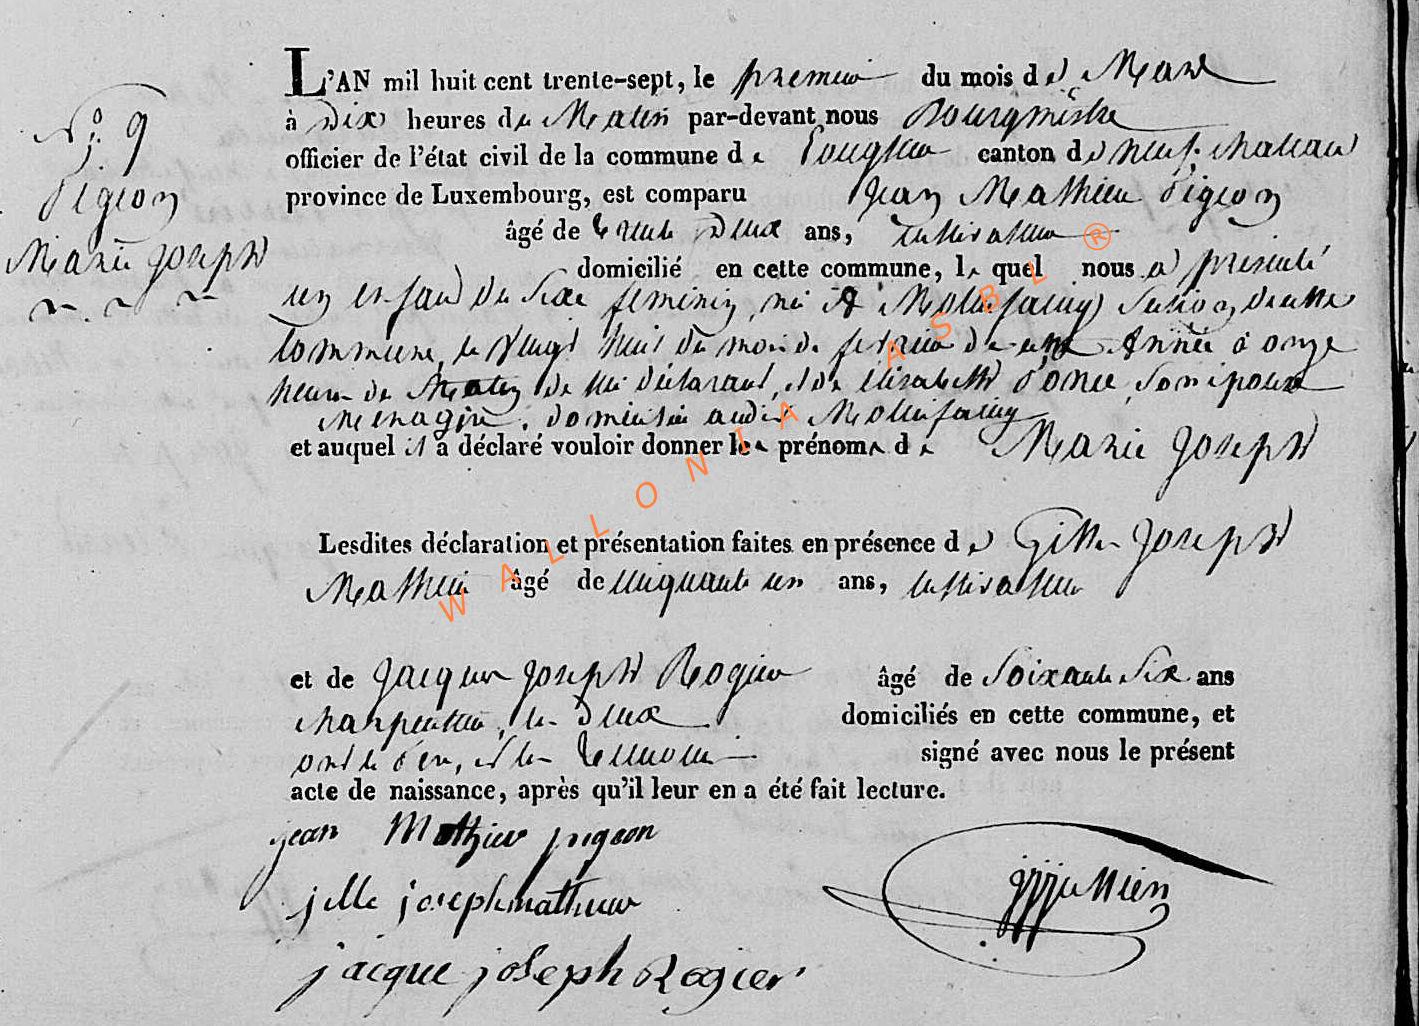 N.o 9
Pigeon
Marie Joseph
L'AN mil huit cent trente-sept, le premier du mois de Mars
à Dix heures du Matin par-devant nous Bourgmestre
officier de l'état civil de la commune de canton de neufchateau
province de Luxembourg, est comparu Jean Mathieu Pigeon
âgé de trente Deux ans, cultivateur
domicilié en cette commune, le quel nous a présenté
un enfant du Sexe feminin, né à Molinfaing Section de cette
Commune, le Vingt huit du mois de fevrier de cette Année à onze
heures du Matin de lui déclarant, et de Elisabeth son épouse
Menagère, domiciliée audit Molinfaing
et auquel il a déclaré vouloir donner les prénoms de Marie Joseph
Lesdites déclaration et présentation faites en présence de Gille Joseph
Mathieu âgé de cinquante un ans, cultivateur
et de Jacques Joseph Rogier âgé de Soixante Six ans
charpentier, les Deux domiciliés en cette commune, et
ont le père, et les temoins signé avec nous le présent
acte de naissance, après qu'il leur en a été fait lecture.
jean Mathieu pigeon
jille joseph mathieu
jacque joseph Rogier
WALLONIA ASBL ®